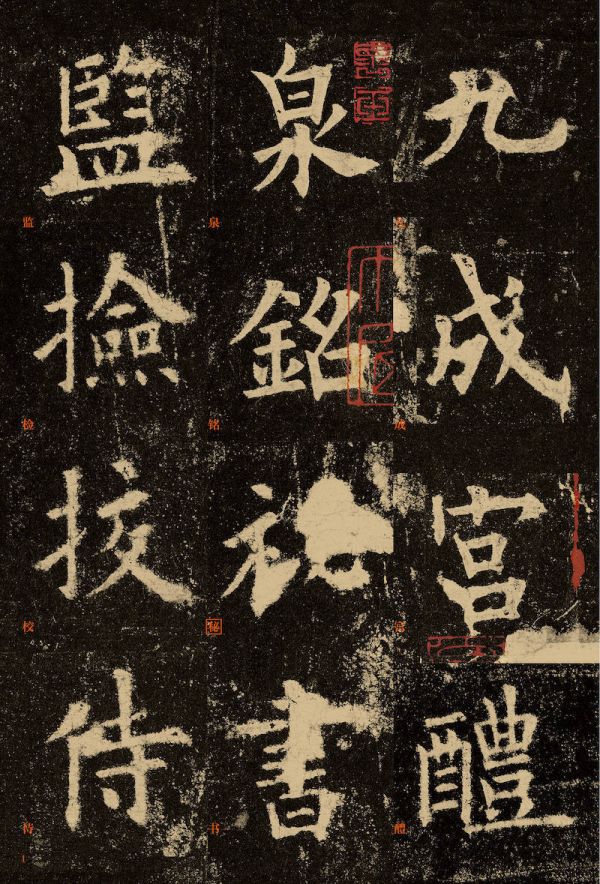 九成宮醴
成宫醴
泉銘祕書
泉铭秘书
監撿挍侍
监检校侍
1